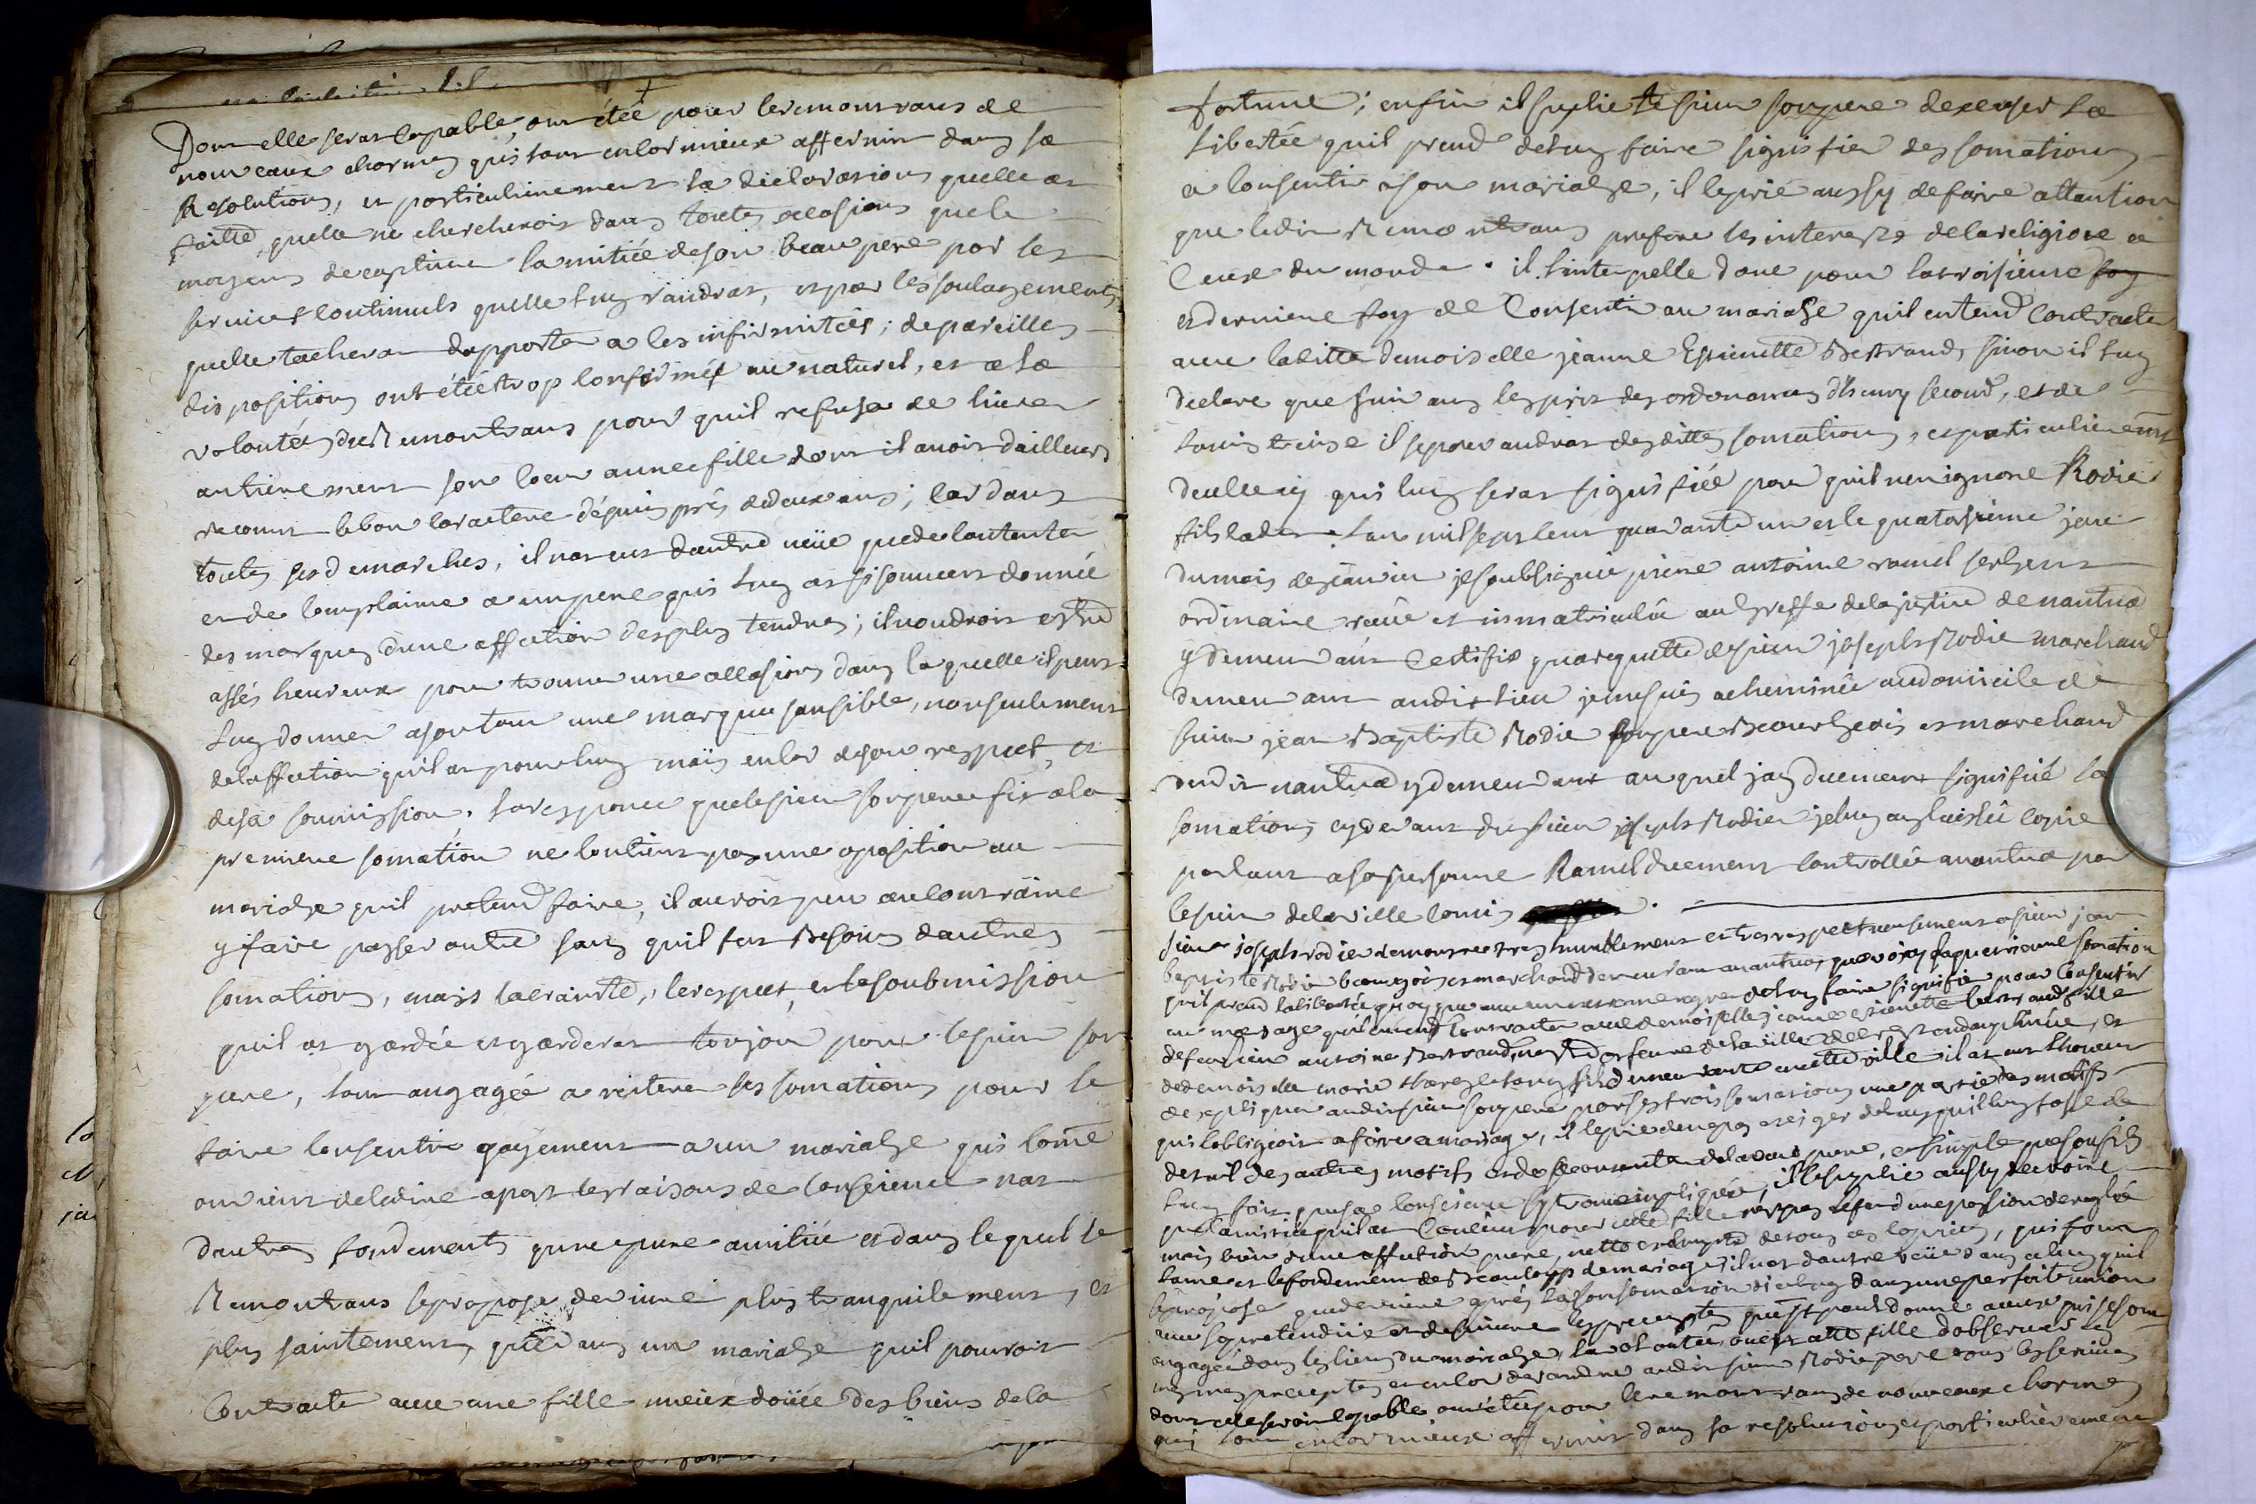 Dont elle serat capable, ont étéé pour le remontrans de
nouveaux charmes qui sont encor mieux affermir dans sa
Resolution, et particulierement la déclaration quelle at
faitte quelle ne chercheroit dans toutes occasions que le
moyens de captiver lamitiée deson beau pere par les
services continuels quelle luy randrat, et par les soulagements
quelle tacherat dapporter a les infirmitées; de pareilles
dispositions ont étéés trop conformes au naturel, et a la
volontée du Remontrans pour quil refusa de livrer
antierement son coeur a une fille dont il avoit dailleurs
reconnut le bon caractere dépuis prés de deux ans; car dans
toutes ses demarches, il nat eut dautre veüe que de contenter
et de complaire a un pere qui luy at si souvent donnée
des marques dune affection des plus tendres; il voudroit estre
assés heureux pour trouver une occasion dans la quelle il peut
luy donner a son tour une marque sensible, nonseulement
delaffection quil at pour luy mais encor de son respect, et
desa soumission. la responce que le sieur son pere fit ala
premiere somation ne contient pas une oposition au
mariage quil pretend faire, il auroit peu au contraire
y faire passer outre sans quil fut besoin dautres
somations, mais la crainte, le respect, et la soubmission
quil at gardée et garderat toujour pour le sieur son
pere, lont angagée a reiterer ses somations pour le
faire consentir gayement a un mariage qui come
on vient de le dire apart les raisons de conscience nat
dautres fondements que une pure amitiée et dans lequel le
Remontrans se propose de vivre plus tranquilement, et
plus saintement que dans un mariage quil pouroit
Contracter avec une fille mieux doüée des biens de la
fortune; enfin il suplie le sieur son pere dexcuser la
libertée quil prend de luy faire signifier des somations
a consentir a son mariage, il le prie aussy de faire attantion
que ledit Remontrans prefere les interests de la religion a
Ceux du monde. il linterpelle donc pour la troisieme foy
et derniere foy de Consentir au mariage quil entend contracter
avec laditte demoiselle jeanne Espienette Bertrand, sinon il luy
declare que suivans lesprit des ordonances dhenry second, et de
Louis treize il se pouvaudrat desdittes somations, et particulierement
de celle cy qui luy serat signifiée pour quil nen ignore Rodie
fils ladit. Lan mil sept cent quarante un et le quatorsieme jour
du mois de janvier je soubsignée pierre antoine ramel sergent
ordinaire receüe et immatriculée au greffe de la justice de nantua
y demeurant Certifie qua requette de sieur joseph Rodie marchand
demeurant audit lieu je me suis acheminée au domicile de
sieur jean Baptiste Rodie son pere Bourgeois et marchand
dudit nantua y demeurant au quel jay duement signifié la
somation cy devant du sieur joseph Rodier je luy ay laissée copie
parlant a sa personne Ramel duement controllée a nantua par
le sieur delaville comis
Sieur joseph rodier demonstre tres humblement et tres respectueusement a sieur jean
baptiste Rodie bourgeois et marchand demeurant a nantua, que voicy la quatrieme somation
quil prend la libertée quoy que avec un extreme regret de luy faire signifier pour Consentir
au mariage quil entend contracter avec demoiselle jeanne espienette bertrand fille
de feu sieur antoine Bertrand, maître orfeuvre de la ville de crest en dauphinée, et
de demoiselle marie demeurante en cette ville il at eut lhonneur
de expliquer audit sieur son pere par ses trois somations une partie des motifs
qui lobligeoit a faire ce mariage, il le prie de ne pas exiger de luy quil luy fasse le
detail des autres motifs et de se contenter de la, et simple presomption
luy fait que sa conscience sy trouve impliquée, il le suplie aussy de croire
que lamitiée quil at Conceüe pour cette fille nest pas leffet dune passion dereglée
mais bien dune affection pure, nette et de tous ces caprices, qui font
lame et le fondement de Beaucoup de mariages il nat dautre veüe dans celuy quil
se propose que de vivre aprés la consomation dicelluy dans une parfaite union
avec sa pretendüe et de suivre les preceptes que st paul donne a ceux qui se sont
engagée dans les liens du mariage, la volontée quat cette fille dobserver les
mesmes preceptes et encor de randre audit sieur Rodie pere tous les services
dont elle seroit capable ont étéé pour le remontrans de nouveaux charmes
qui lont encor mieux affermir dans sa resolution et particulierement